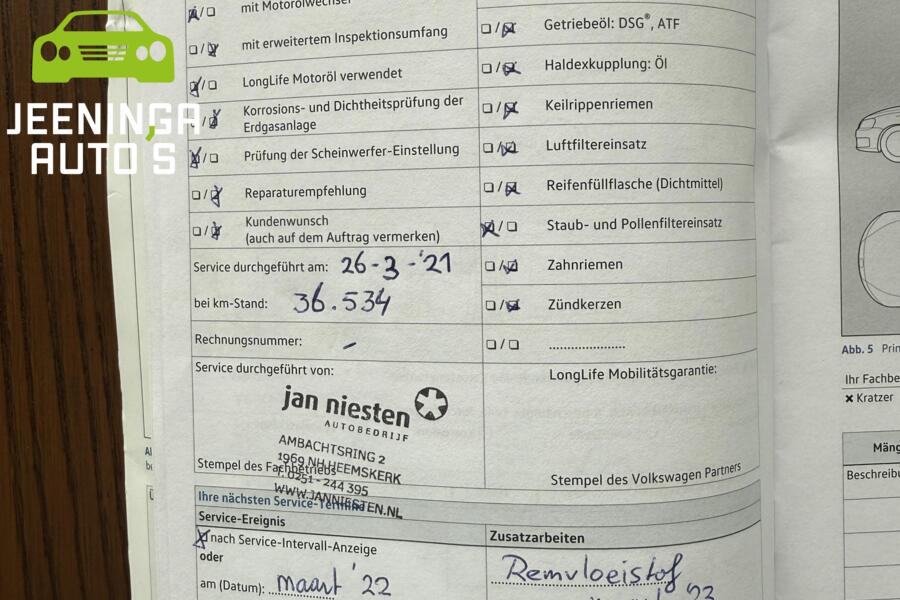 JEENINGA
AUTO'S
mit Motorölwechsel
mit erweitertem Inspektionsumfang
LongLife Motoröl verwendet
Korrosions- und Dichtheitsprüfung der
Erdgasanlage
Prüfung der Scheinwerfer-Einstellung
Reparaturempfehlung
Kundenwunsch
(auch auf dem Auftrag vermerken)
Service durchgeführt am: 26-3-'21
bei km-Stand: 36.534
Rechnungsnummer: -
Service durchgeführt von:
jan niesten
AUTOBEDRIJF
AMBACHTSRING 2
1969 NH HEEMSKERK
T. 0251 - 244 395
WWW.JANNIESTEN.NL
Stempel des Fachbetriebs
Getriebeöl: DSG®, ATF
Haldexkupplung: Öl
Keilrippenriemen
Luftfiltereinsatz
Reifenfüllflasche (Dichtmittel)
Staub- und Pollenfiltereinsatz
Zahnriemen
Zündkerzen
....................
LongLife Mobilitätsgarantie:
Stempel des Volkswagen Partners
Ihre nächsten Service-Termine
Service-Ereignis
nach Service-Intervall-Anzeige
oder
am (Datum): maart '22
Zusatzarbeiten
Remvloeistof
'23
Abb. 5
Ihr Fachbe
✖ Kratzer
Mäng
Beschreibu